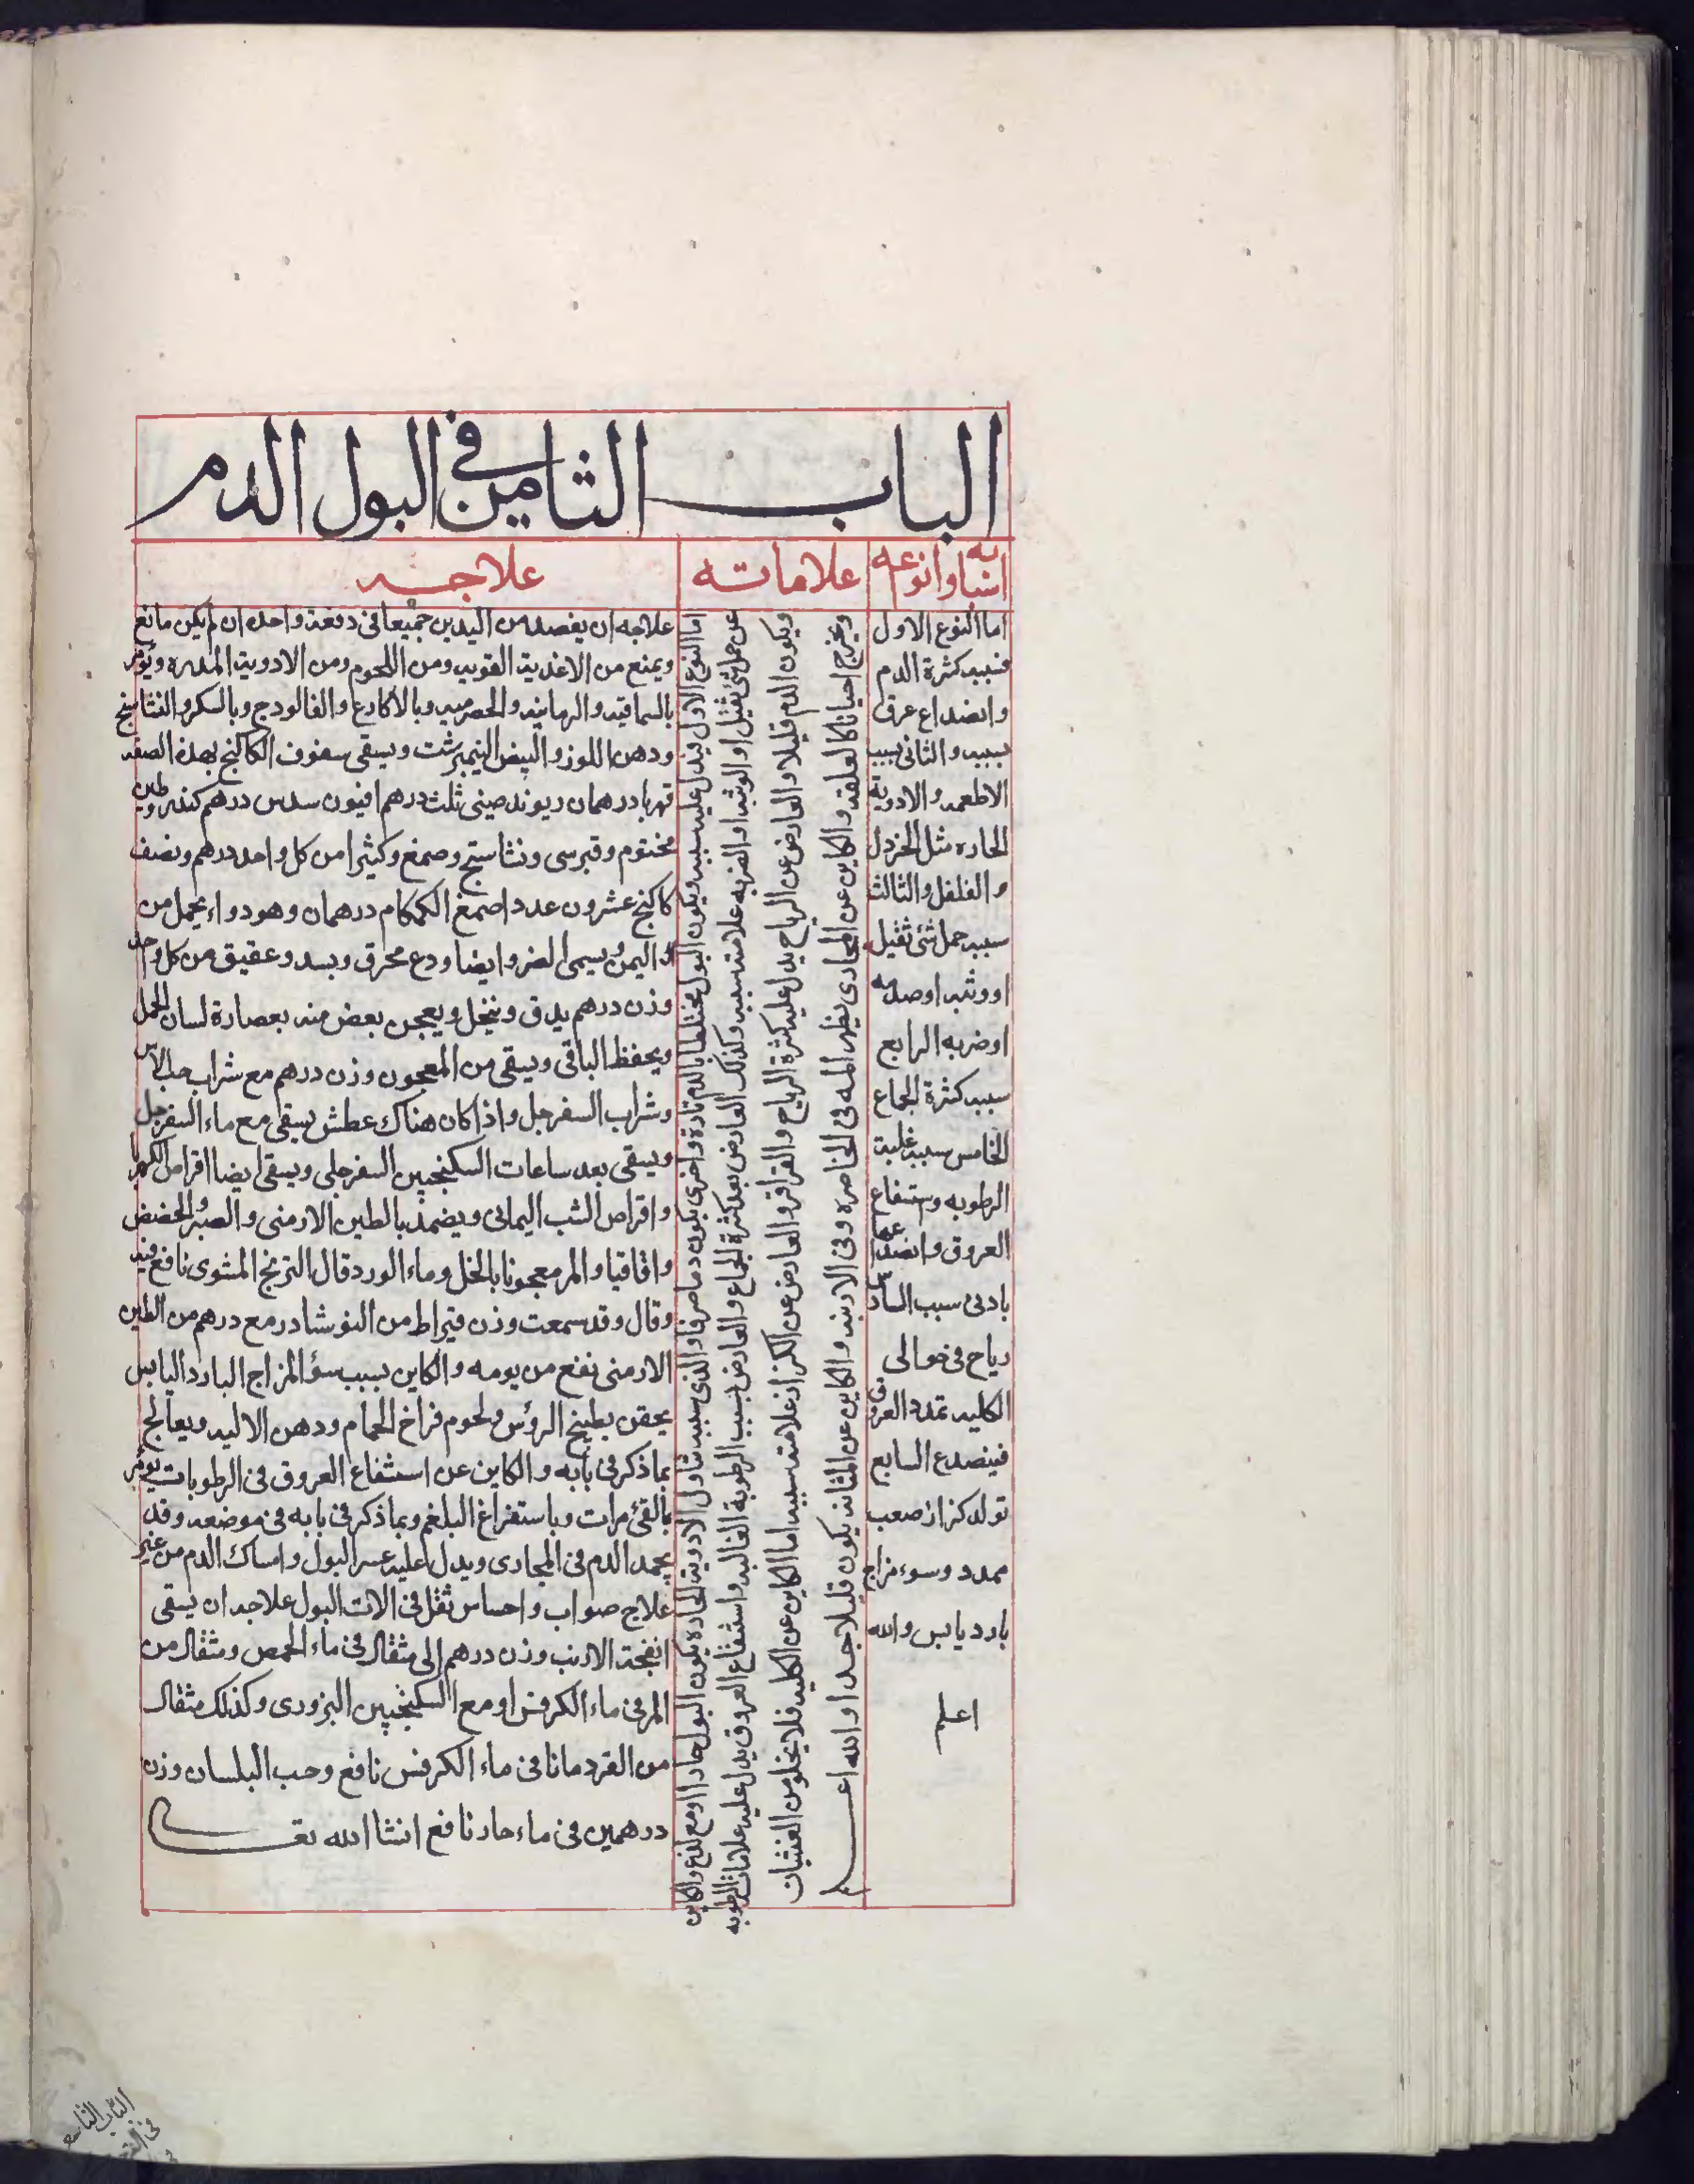 الباب الثامن في البول الدم
اسبابه وانوعه
علاماته
علاجه
اما النوع الاول
فسببه كثرة الدم
وانصداع عرق
بسببه والثانى بسبب
الاطعمه والادوية
الحاره مثل الخردل
والفلفل والثالث
سببه حمل شئ ثقيل
او وثبه او صدمه
او ضربه الرابع
سببه كثرة الجماع
الخامس سببه غلبة
الرطوبه وستنفاع
العروق وانصداعها
بادنى سبب الساد
رياح فى حوالى
الكليه تمدد العروق
فينصدع السابع
تولد كزاز صعب
ممدد وسوء مزاج
بارد يابس والله
اعلم
اما النوع الاول يدل عليه سببه ويكون البول مختلطا بالدم تارة واخرى يكون دما صرفا والذى سببه تناول الادوية الحاره يكون البول حادا ومع لذع والكاين
عن حمل شئ ثقيل او الوثبه او الضربه علامته سببه وكذلك العارض بعد كثرة الجماع والعارض بسبب الرطوبة الغالبه واستنفاع العروق يدل عليه علامات الرطوبه
ويكون الدم قليلا والعارض عن الرياح يدل عليه كثرة الرياح والقراقر والعارض عن الكزاز علامته سببه اما الكاين عن الكليه فلا يخلو من الغشيان
ويخرج احيانا كالعلقه والكاين عن المجارى يظهر المه فى الخاصره وفى الاربيه والكاين عن المثانه يكون قليلا جدا والله اعلم
علاجه ان يفصد من اليدين جميعا فى دفعة واحده ان لم يكن مانع
ويمنع من الاغذية القويه ومن اللحوم ومن الادوية المدره ويؤمر
بالسماقيه والرمانيه والحصرميه وبالاكارع والفالودج وبالسكر والنشاستج
ودهن اللوز والبيض النيمبرشت ويسقى سفوف الكاكنج بهذه الصفه
قهربا درهمان ريوند صينى ثلث درهم افيون سدس درهم كندر وطين
مختوم وقبرسى ونشاستج وصمغ وكثيرا من كل واحد درهم ونصف
كاكنج عشرون عددا صمغ الكمكام درهمان وهو دواء يحمل من
اليمن ويسمى الضرو ايضا ودع محرق وبسد وعقيق من كل واحد
وزن درهم يدق وينخل ويعجن بعض منه بعصارة لسان الحمل
ويحفظ الباقى ويسقى من المعجون وزن درهم مع شراب حب الاس
وشراب السفرجل واذا كان هناك عطش يسقى مع ماء السفرجل
ويسقى بعد ساعات السكنجبين السفرجلى ويسقى ايضا اقراص الكهربا
واقراص الشب اليمانى ويضمد بالطين الارمنى والصبر والحضض
واقاقيا والمر معجونا بالخل وماء الورد قال الترنج المشوى نافع فيه
وقال وقد سمعت وزن قيراط من النوشادر مع درهم من الطين
الارمنى نفع من يومه والكاين بسبب سؤ المزاج البارد اليابس
يحقن بطبيخ الرؤس ولحوم فراخ الحمام ودهن الاليه ويعالج
بما ذكر فى بابه والكاين عن استنفاع العروق فى الرطوبات يؤمر
بالقئ مرات وباستفراغ البلغم وبما ذكر فى بابه فى موضعه وقد
يجمد الدم فى المجارى ويدل عليه عسر البول وامساك الدم من غير
علاج صواب واحساس ثقل فى الات البول علاجه ان يسقى
انفحة الارنب وزن درهم الى مثقال فى ماء الحمص ومثقال من
المر فى ماء الكرفس او مع السكنجبين البزورى وكذلك مثقال
من القردمانا فى ماء الكرفس نافع وحب البلسان وزن
درهمين فى ماء حار نافع انشا الله تعا
الباب التاسع
فى